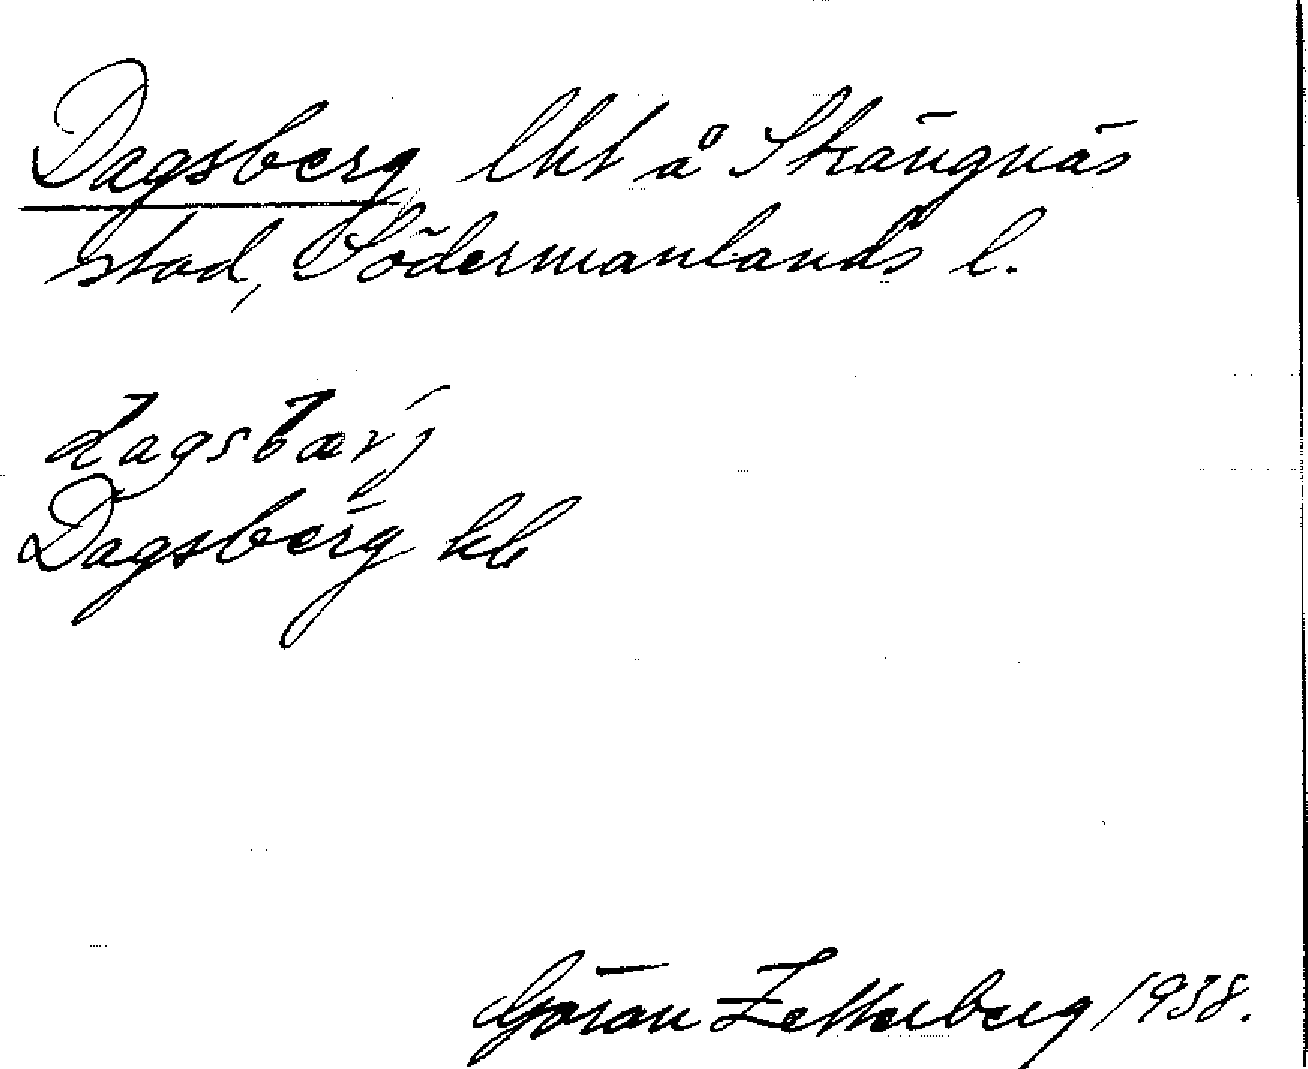 Dagsberg lht å Strängnäs
stad, Södermanlands l.
dagsbærj
Dagsberg kb
Göran Zetterberg 1938.